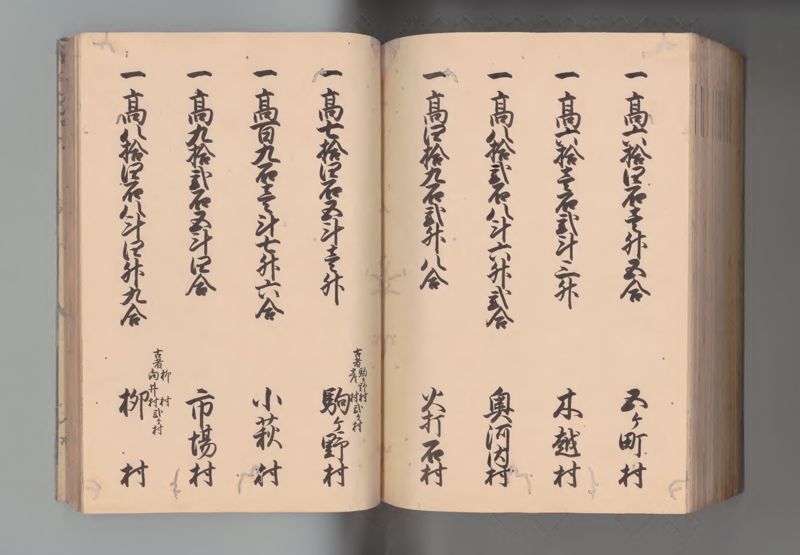 一 高六拾四石壱升五合
五ヶ町村
一 高六拾壱石弐斗三升
木越村
一 高八拾弐石八斗六升弐合
奥河内村
一 高四拾九石弐升八合
火打石村
一 高七拾四石五斗壱升
古者駒ヶ野村
村弐ヶ村
駒ヶ野村
一 高百九石壱斗七升六合
小萩村
一 高九拾弐石五斗四合
市場村
一 高八拾四石八斗四升九合
古者柳村
向井村弐ヶ村
柳村